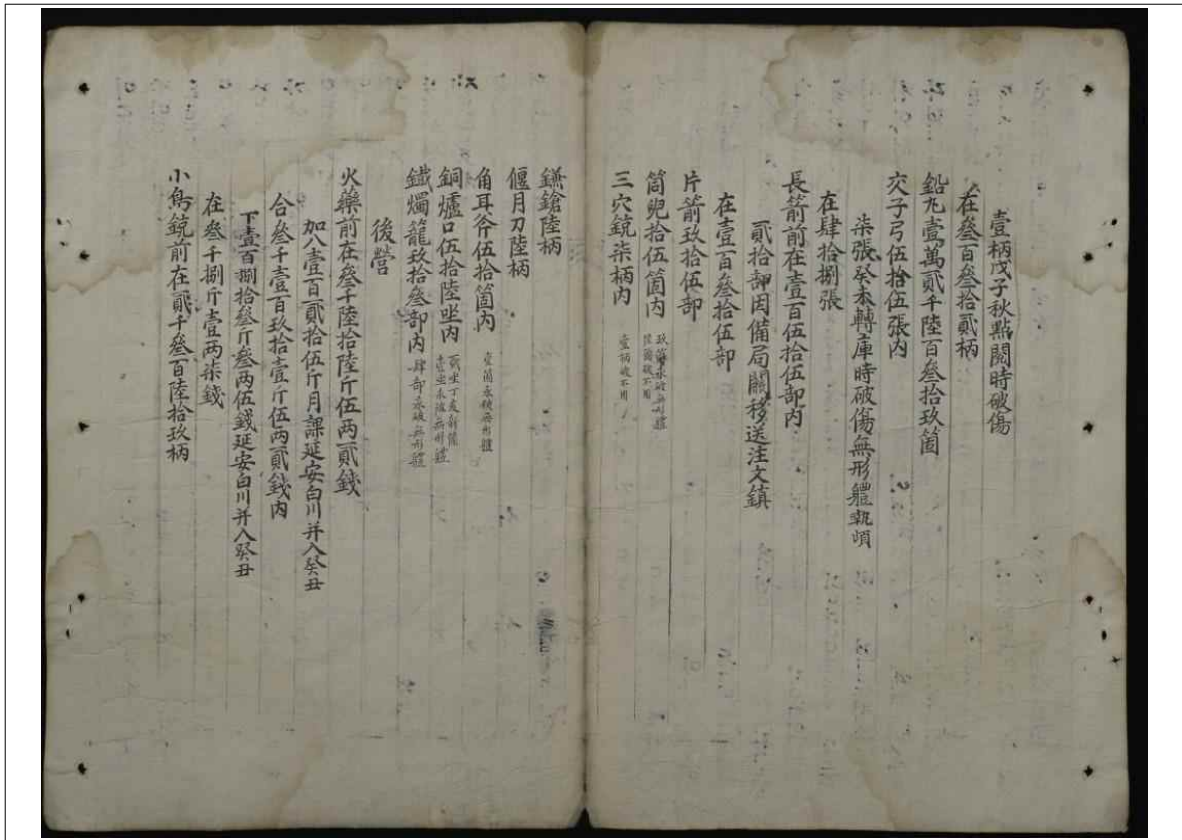 壹柄戊子秋點閱時破傷
在叄百叄拾貳柄
鉛丸壹萬貳千陸百叄拾玖箇
交子弓伍拾伍張內
柒張癸未轉庫時破傷無形軆執頉
在肆拾捌張
長箭前在壹百伍拾伍部內
貳拾部因備局關移送注文鎮
在壹百叄拾伍部
片箭玖拾伍部
筒兒拾伍箇內
玖箇永破無形軆
箇破不用
三穴銃柒柄內 壹柄破不用
鎌鎗陸柄
偃月刀陸柄
角耳斧伍拾箇內 壹箇永破無形軆
銅爐口伍拾陸坐內
貳坐丁亥新備
壹坐永破無形軆
鐵燭籠玖拾叄部內 肆部永破無形軆
後營
火藥前在叄千陸拾陸斤伍兩貳錢
加入壹百貳拾伍斤月課延安白川并入癸丑
合叄千壹百玖拾壹斤伍兩貳錢內
下壹百捌拾叄斤叄兩伍錢延安白川并入癸丑
在叄千捌斤壹兩柒錢
小鳥銃前在貳千叄百陸拾玖柄